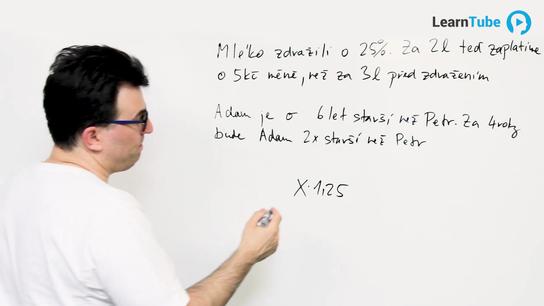 LearnTube
Mléko zdražili o 25%. Za 2l teď zaplatíme
o 5kč méně, než za 3l před zdražením
Adam je o 6 let starší než Petr. Za 4 roky
bude Adam 2x starší než Petr
X·1,25